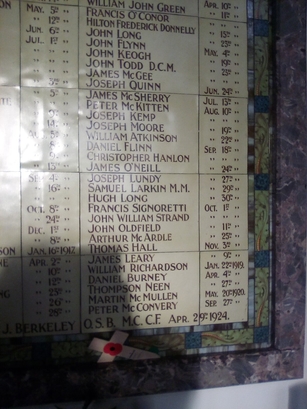 WILLIAM JOHN GREEN APR. 10TH
MAY. 5TH FRANCIS O'CONOR " 11TH
" 12TH HILTON FREDERICK DONNELLY " 15TH
JUN. 6TH JOHN LONG " "
JUL. 1ST JOHN FLYNN " 25TH
" " JOHN KEOGH MAY. 4TH
" " JOHN TODD D.C.M. " 19TH
" " JAMES McGEE " 25TH
" 3RD JOSEPH QUINN " "
" " JAMES McSHERRY JUN. 24TH
" 5TH PETER McKITTEN JUL. 15TH
" 7TH JOSEPH KEMP AUG. 10TH
" 14TH JOSEPH MOORE " "
WILLIAM ATKINSON " 19TH
DANIEL FLINN " 23RD
CHRISTOPHER HANLON SEP. 18TH
" 15TH JAMES O'NEILL " 24TH
SEP. 4TH JOSEPH LUNDY " 27TH
" 16TH SAMUEL LARKIN M.M. " 29TH
" " HUGH LONG " 30TH
OCT. 8TH FRANCIS SIGNORETTI OCT. 1ST
" 24TH JOHN WILLIAM STRAND " "
DEC. 1ST JOHN OLDFIELD " 11TH
" 8TH ARTHUR McARDLE " 25TH
JAN. 16TH 1917. THOMAS HALL NOV. 5TH
APR. 2ND JAMES LEARY " 9TH
" 10TH WILLIAM RICHARDSON JAN. 22ND 1919.
" 12TH DANIEL BURNEY APR. 4TH
" 23RD THOMPSON NEEN " 27TH
" 26TH MARTIN McMULLEN MAY. 20TH 1920.
" 28TH PETER McCONVERY SEP. 27TH
J. BERKELEY O.S.B. M.C. C.F. APR. 29TH 1924.